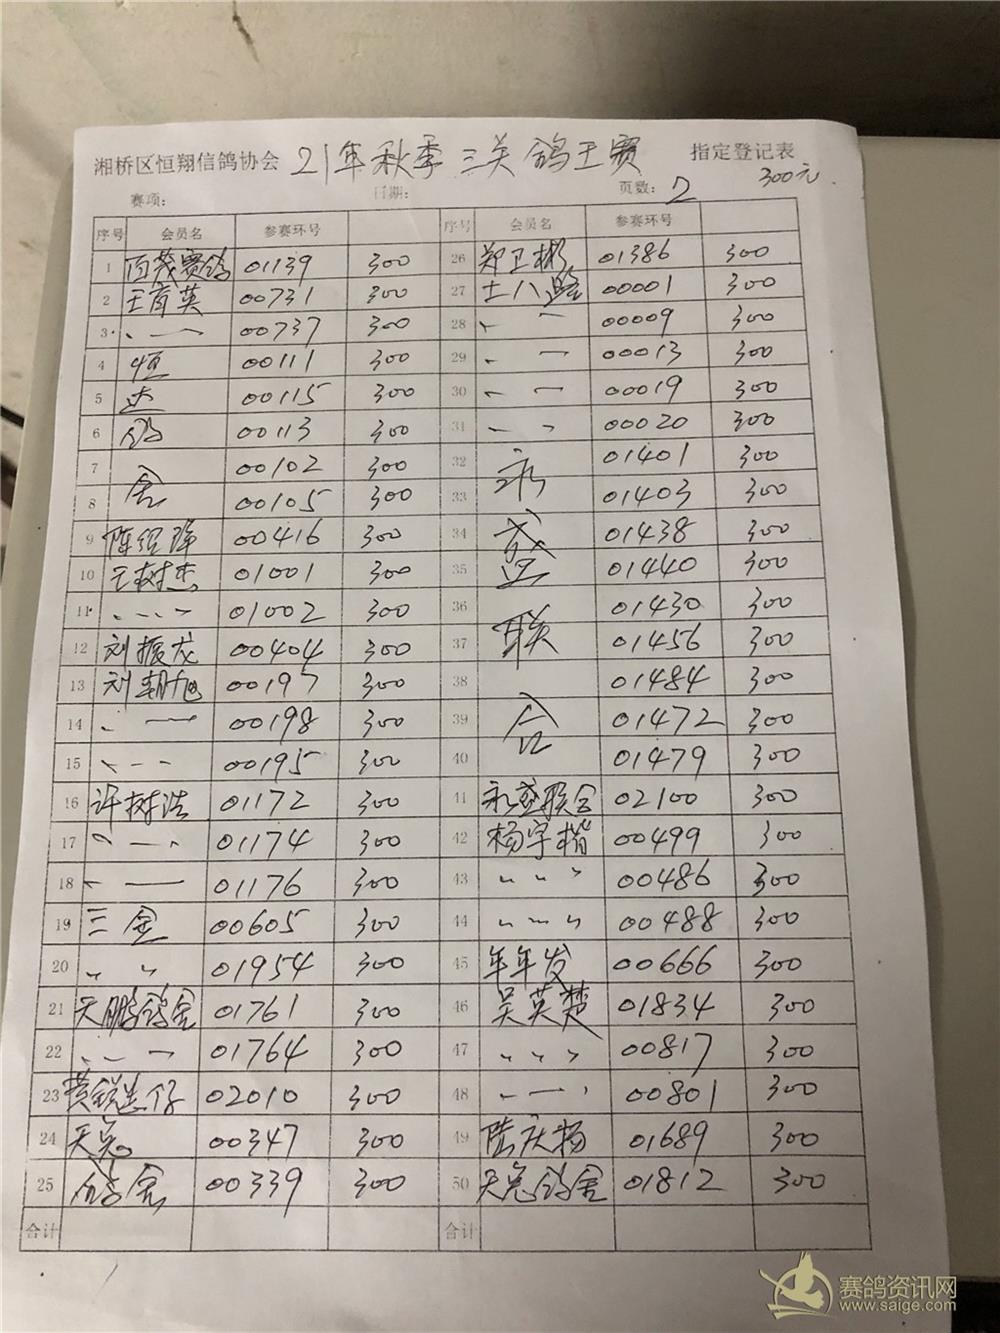 湘桥区恒翔信鸽协会 21年秋季三关鸽王赛 指定登记表
赛项: 日期: 页数: 2 300元
序号 会员名 参赛环号 序号 会员名 参赛环号
1 百茂赛鸽 01139 300 26 郑卫彬 01386 300
2 王育英 00731 300 27 士八路 00001 300
3 〃 〃 00737 300 28 〃 〃 00009 300
4 恒 00111 300 29 〃 〃 00013 300
5 达 00115 300 30 〃 〃 00019 300
6 鸽 00113 300 31 〃 〃 00020 300
7 舍 00102 300 32 永 01401 300
8 00105 300 33 01403 300
9 陈 00416 300 34 盛 01438 300
10 王树杰 01001 300 35 01440 300
11 〃 〃 〃 01002 300 36 联 01430 300
12 刘振龙 00404 300 37 01456 300
13 刘朝旭 00197 300 38 01484 300
14 〃 〃 00198 300 39 合 01472 300
15 〃 〃 〃 00195 300 40 01479 300
16 许树浩 01172 300 41 永盛联合 02100 300
17 〃 〃 〃 01174 300 42 杨宇楷 00499 300
18 〃 〃 01176 300 43 〃 〃 〃 00486 300
19 三金 00605 300 44 〃 〃 〃 00488 300
20 〃 〃 01954 300 45 年年发 00666 300
21 天鹏鸽舍 01761 300 46 吴英楚 01834 300
22 〃 〃 〃 01764 300 47 〃 〃 〃 00817 300
23 02010 300 48 〃 〃 〃 00801 300
24 天宠 00347 300 49 陆庆扬 01689 300
25 鸽舍 00339 300 50 天宠鸽舍 01812 300
合计 合计
赛鸽资讯网
www.saige.com